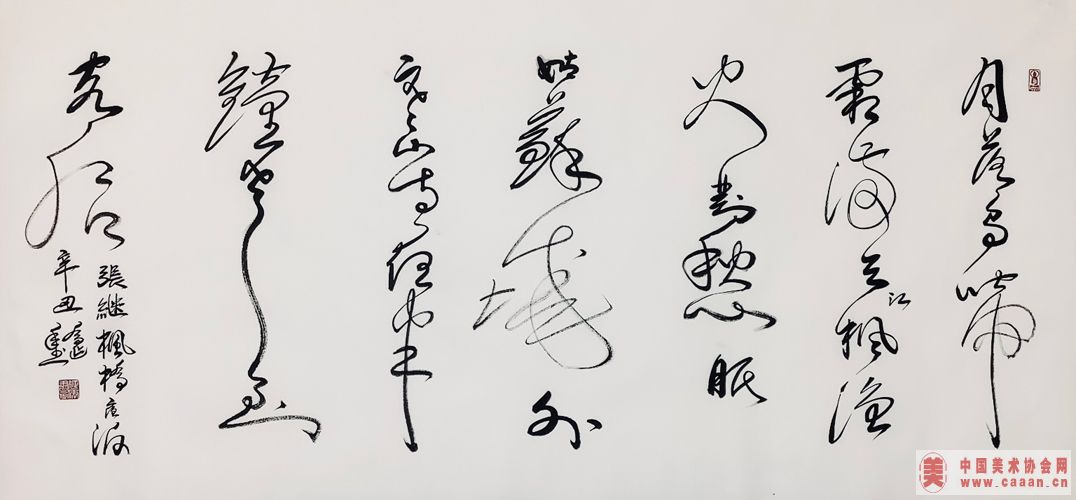 月落烏啼
霜满天江楓渔
火對愁眠
姑蘇城外
寒山寺夜半
鐘聲到
客船
張継楓橋夜泊
辛丑
美 中国美术协会网
www.caaan.cn